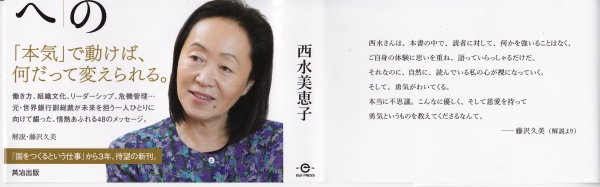 への
「本気」で動けば、
何だって変えられる。
働き方、組織文化、リーダーシップ、危機管理…
元・世界銀行副総裁が未来を担う一人ひとりに
向けて綴った、情熱あふれる48のメッセージ。
解説・藤沢久美
『国をつくるという仕事』から3年、待望の新刊。
英治出版
西水美恵子
EIJI PRESS
西水さんは、本書の中で、読者に対して、何かを強いることはなく、
ご自身の体験に思いを重ね、語っていらっしゃるだけだ。
それなのに、自然に、読んでいる私の心が裸になっていく。
そして、勇気がわいてくる。
本当に不思議。こんなに優しく、そして慈愛を持って
勇気というものを教えてくださるなんて。
——藤沢久美(解説より)